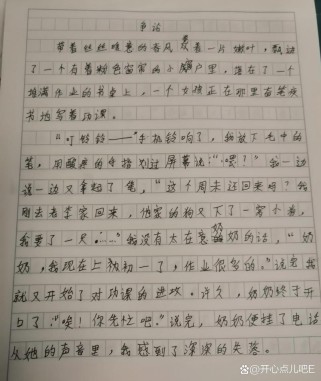 电话
带着丝丝暖意的春风裹着一片嫩叶，飘进
了一个有着粉色窗帘的小窗户里，落在了一个
堆满作业的书桌上，一个女孩正在那里奋笔疾
书地写着功课。
“叮铃铃——”手机铃响了，我放下手中的
笔，用酸痛的手指划过屏幕说：“喂？”我一边
说一边又拿起了笔，“这个周末还回来吗？我
刚去老李家回来，他家的狗又下了一窝小崽，
我要了一只……”我没有太在意奶奶的话，“奶
奶，我现在上初一了，作业很多的。”说完我
就又开始了对功课的进攻。许久，奶奶终于开
口了：“唉！你先忙吧。”说完，奶奶便挂了电话
从她的声音里，我感到了深深的失落。
@开心点儿吧E